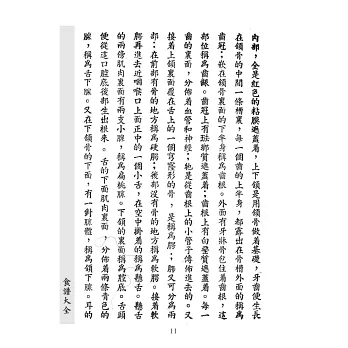 內部，全是紅色的粘膜遮蓋着，上下頜是用頜骨做着基礎，牙齒便生長
在頜骨的中間一條槽裏，每一個齒的上半身，都露出在骨槽外面的稱爲
齒冠；嵌在頜骨裏面的下半身稱爲齒根。外面有牙牀骨包住着齒根，這
部位稱爲齒齦。齒冠上有琺瑯質遮蓋着；齒根上有白堊質遮蓋着。每一
齒的裏面，分佈着血管和神經；牠是從齒根上的小管子傳佈進去的。又
接着上頜裏面覆在舌上的一個穹窿形的骨，是稱爲腭；腭又可分爲兩
部：在前部有骨的地方稱爲硬腭；後部沒有骨的地方稱爲軟腭。接着軟
腭再進去近咽喉口上面正中的一個小舌，在空中掛着的稱爲懸舌。懸舌
的兩條肌肉裏面有兩支小腺，稱爲扁桃腺。下頜的裏面稱爲腔底。舌頭
便從這口腔底後部生出根來。舌的下面肌肉裏面，分佈着兩條青色的
腺，稱爲舌下腺。又在下頜骨的下面，有一對腺體，稱爲頜下腺。耳的
食譜大全
11